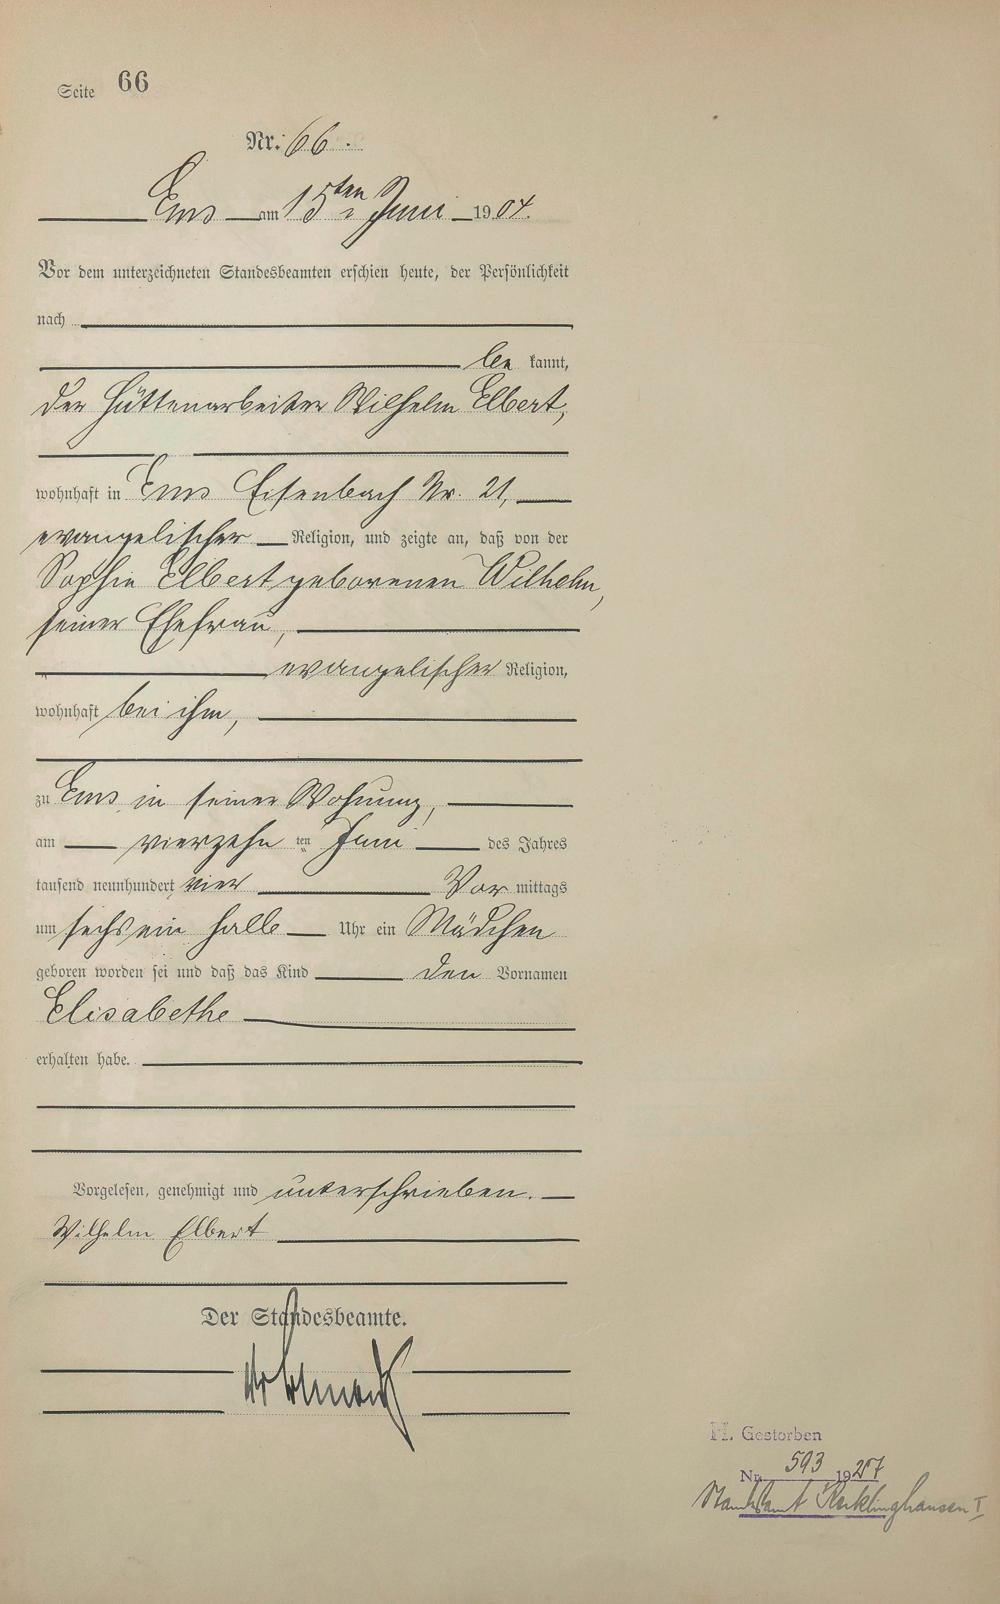 Seite 66
Nr. 66.
Ems am 15ten Juni 1904.
Vor dem unterzeichneten Standesbeamten erschien heute, der Persönlichkeit
nach
be kannt,
der Hüttenarbeiter Wilhelm Elbert,
wohnhaft in Ems Eisenbach Nr. 21,
evangelischer Religion, und zeigte an, daß von der
Sophie Elbert geborenen Wilhelm,
seiner Ehefrau,
evangelischer Religion,
wohnhaft bei ihm,
zu Ems in seiner Wohnung,
am vierzehn ten Juni des Jahres
tausend neunhundert vier Vor mittags
um sechs ein halb Uhr ein Mädchen
geboren worden sei und daß das Kind den Vornamen
Elisabethe
erhalten habe.
Vorgelesen, genehmigt und unterschrieben.
Wilhelm Elbert
Der Standesbeamte.
H. Gestorben
Nr. 593 1957
Standesamt Recklinghausen I